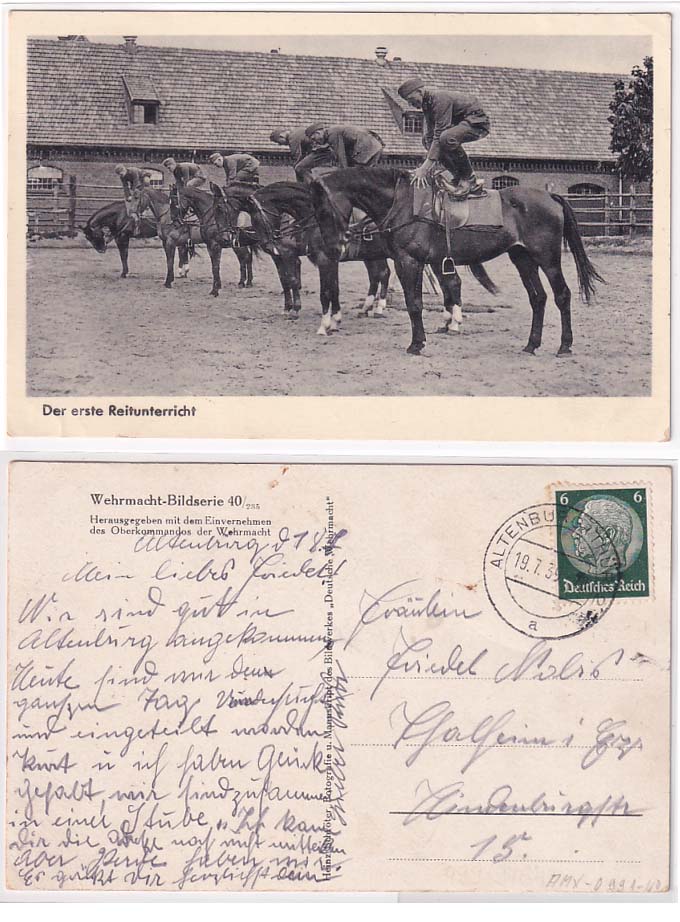 Der erste Reitunterricht
Wehrmacht-Bildserie 40/235
Herausgegeben mit dem Einvernehmen
des Oberkommandos der Wehrmacht
Altenburg d 18.7
Mein liebes Friedel!
Wir sind gut in
Altenburg angekommen
Heute sind wir den
ganzen Tag
und eingeteilt worden
Kurt u ich haben Glück
gehabt wir sind zusammen
in einer Stube. Ich kann
Dir die noch nicht mitteilen
Aber Pferde haben wir.
Es grüßt Dir herzlichst dein
Heinz Schröter, Fotografie u. Manuskript des Bildwerkes „Deutsche Wehrmacht"
6 6
Deutsches Reich
ALTENBURG (THÜR)
19.7.39
a
Fräulein
Friedel
Thalheim i Erzg
Hindenburgstr
15.